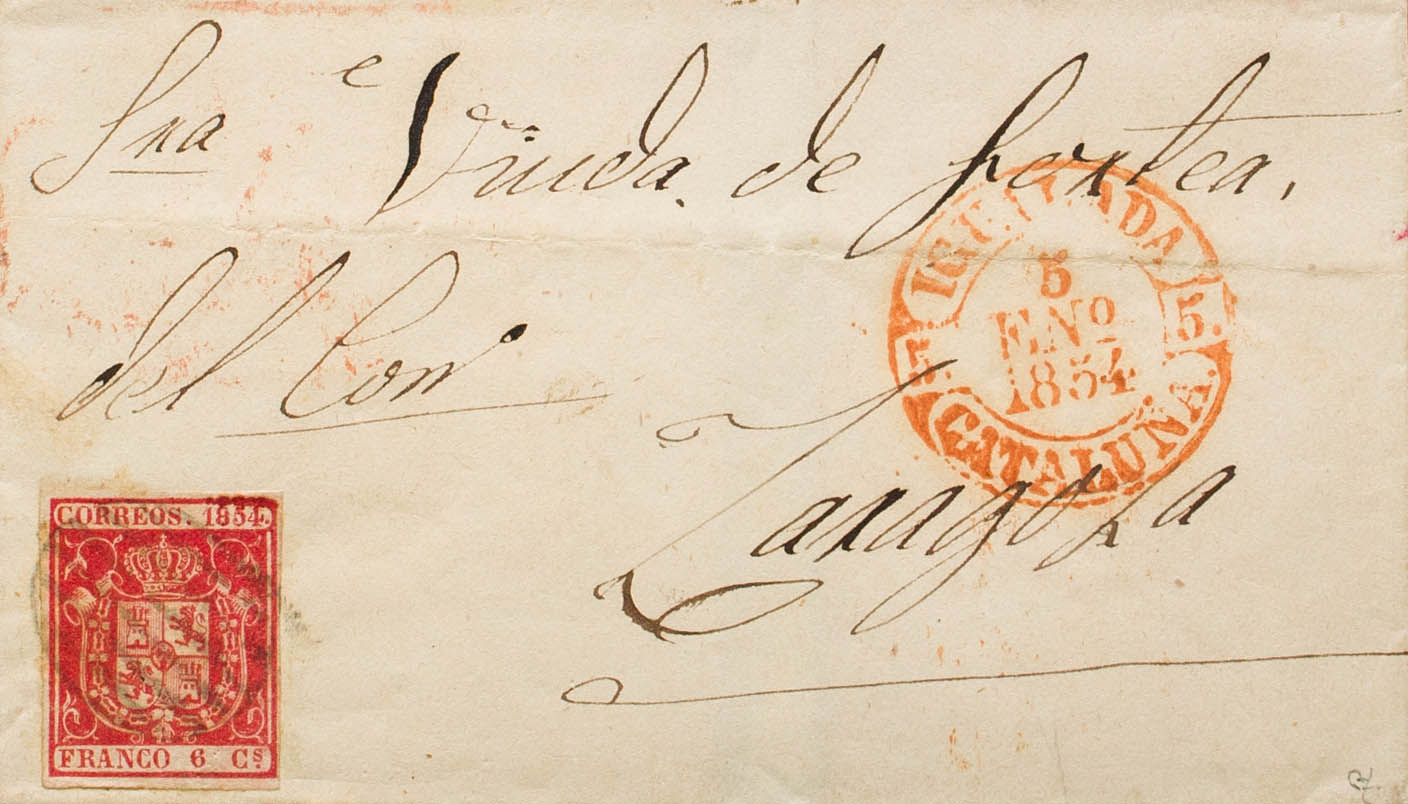 Sra Viuda de Fortea,
del Com
Zaragoza
IGUALADA
5 ENº 1854
5. 5.
CATALUÑA.
CORREOS. 1854.
FRANCO 6 Cs.